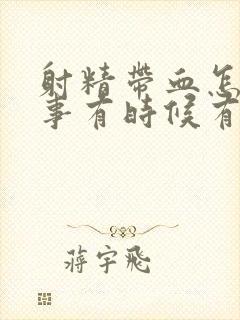 射精帶血怎
事有時候有
蔣宇飛